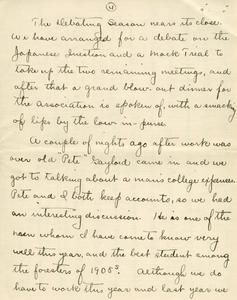 4
The Debating Season nears its close.
We have arranged for a debate on the
Japanese Question and a Mock Trial to
take up the two remaining meetings, and
after that a grand blow-out dinner for
the association is spoken of, with a smacking
of lips by the low-in-purse.
A couple of nights ago after work was
over old "Pete" Gaylord came in and we
got to talking about a man's college expenses.
Pete and I both keep accounts, so we had
an interesting discussion. He is one of the
men whom I have come to know very
well this year, and the best student among
the foresters of 1905s. Although we do
have to work this year and last year we